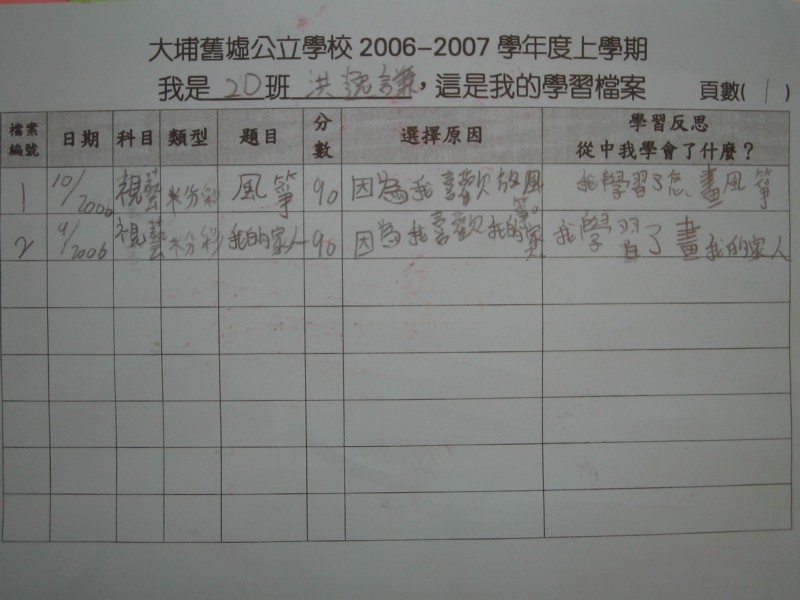 大埔舊墟公立學校 2006-2007 學年度上學期
我是 2D 班 洪逸謙，這是我的學習檔案 頁數( 1 )
檔案編號 日期 科目 類型 題目 分數 選擇原因 學習反思 從中我學會了什麼？
1 10/2006 視藝 粉彩 風箏 90 因為我喜歡放風箏。 我學習了怎畫風箏
2 9/2006 視藝 粉彩 我的家人 90 因為我喜歡我的家人 我學習了畫我的家人